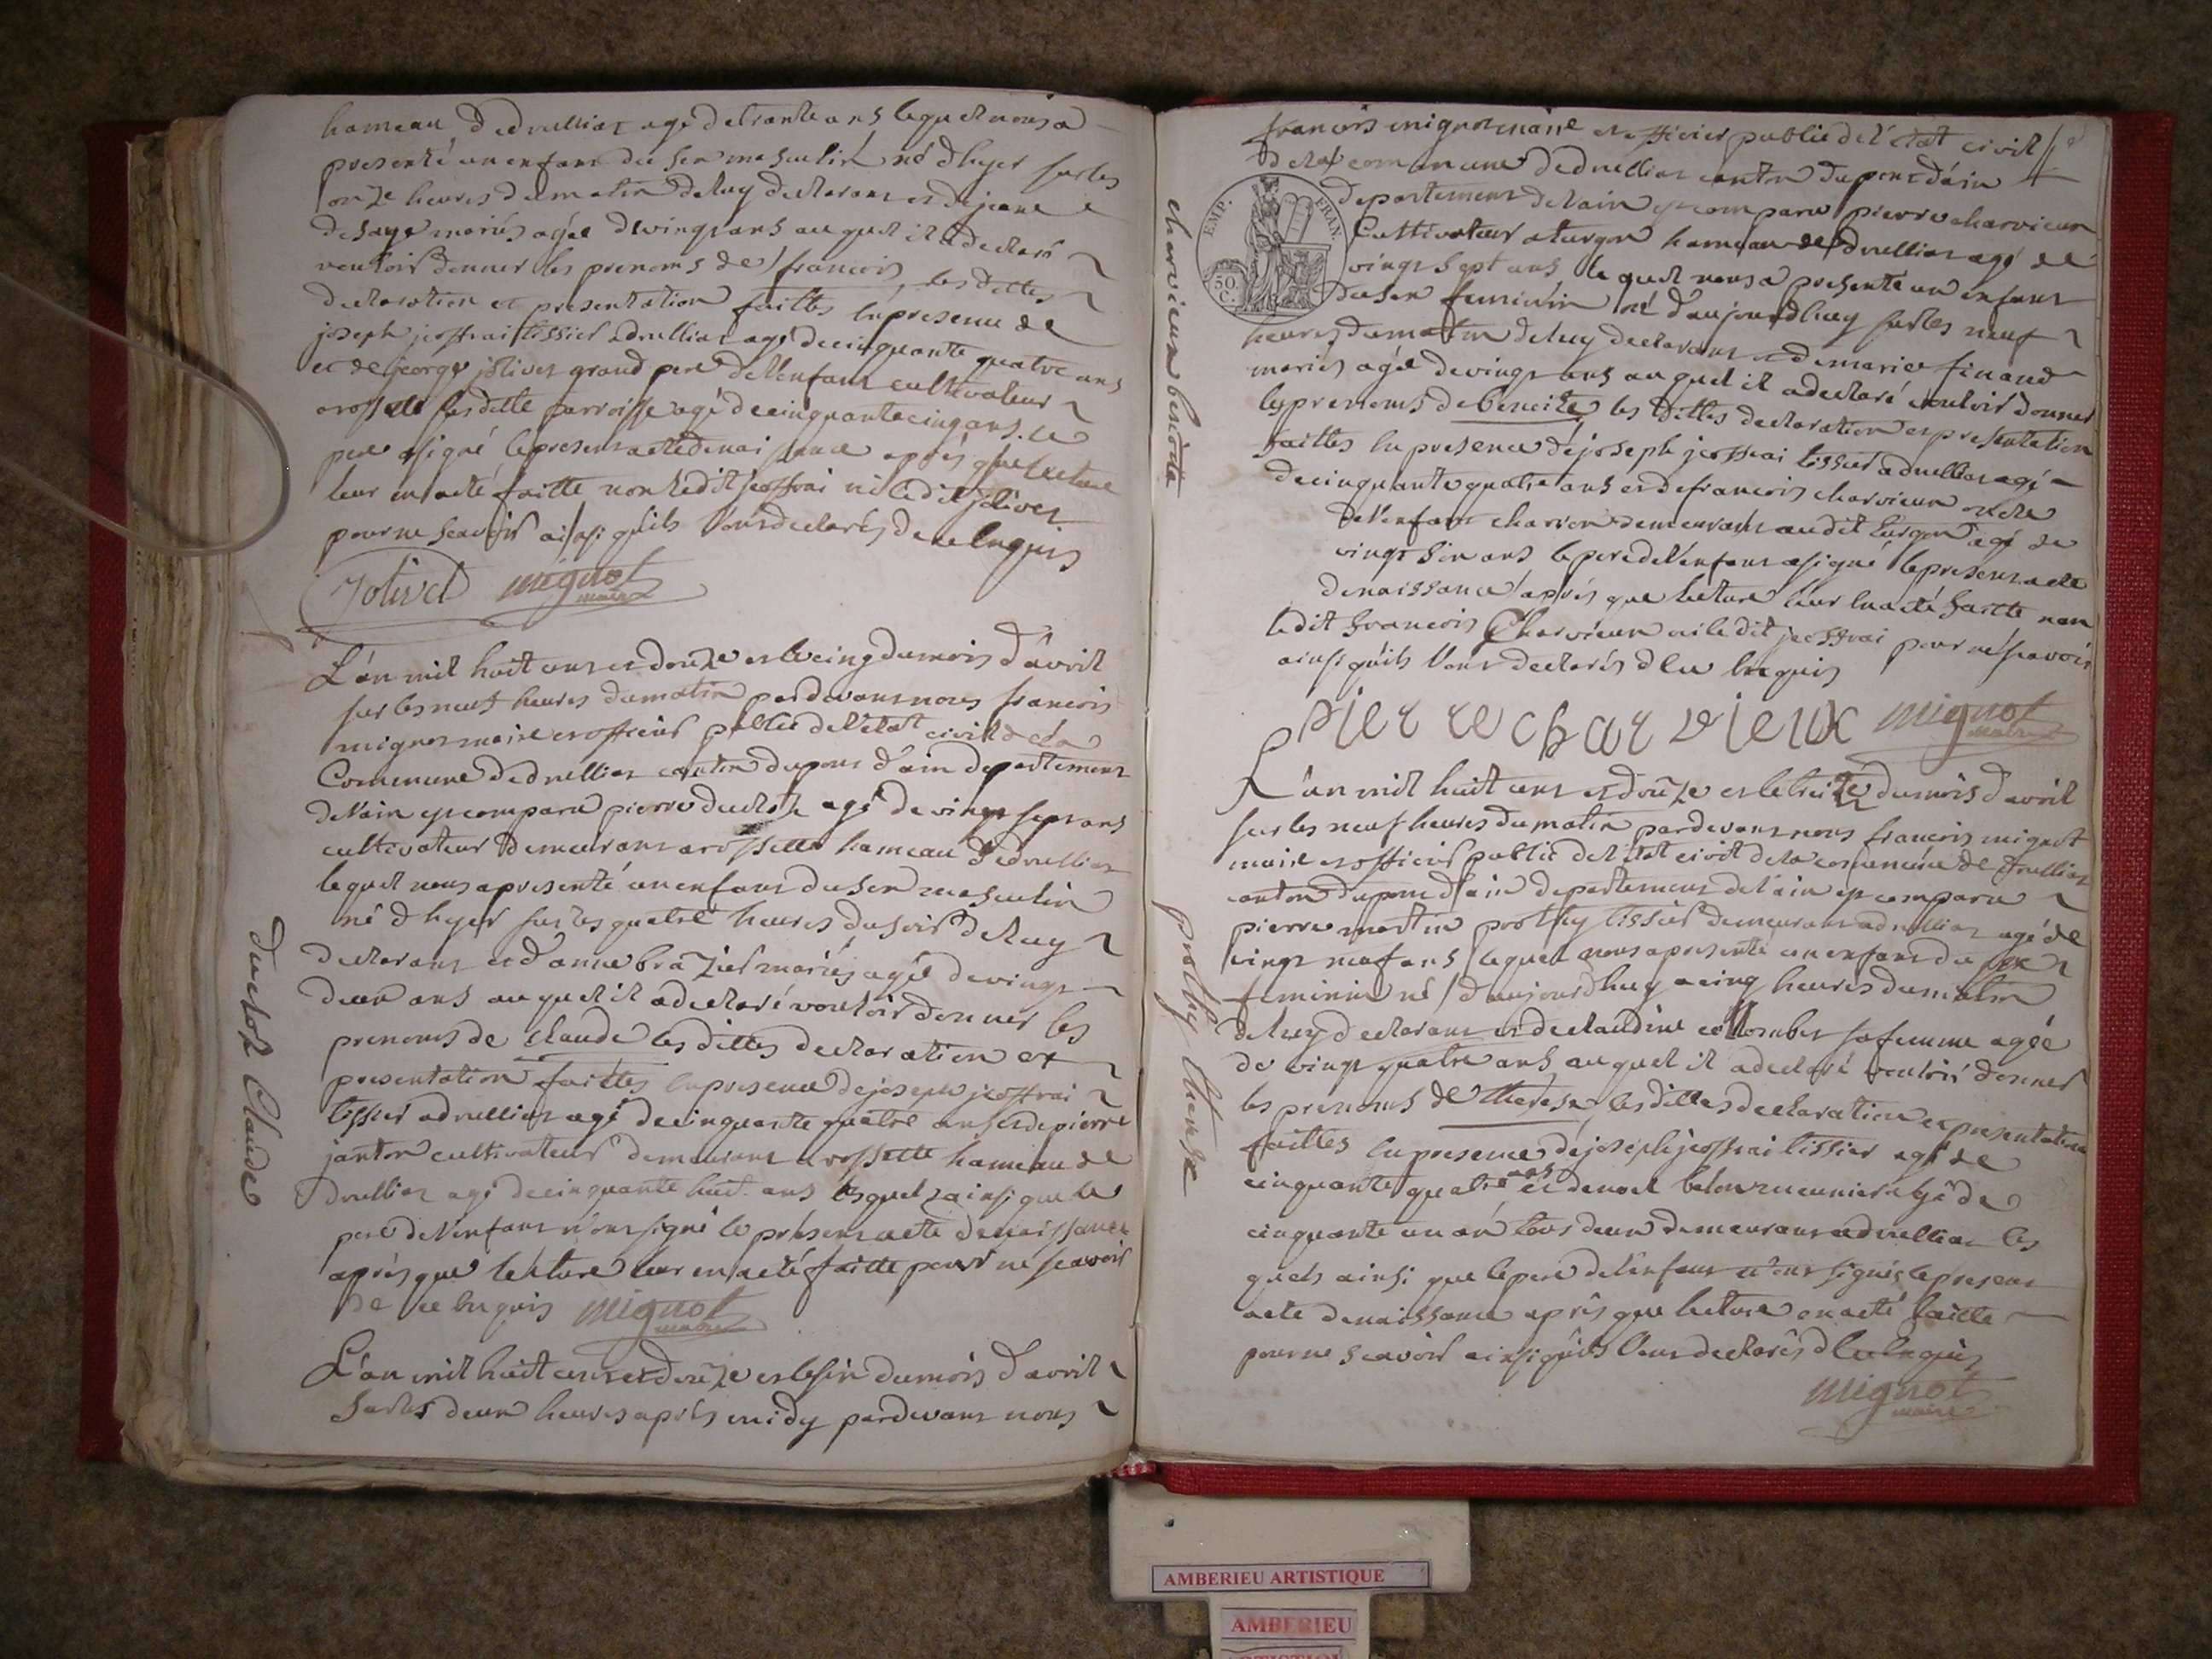 hameau dedruilliat agé de trante ans lequel nous a
presenté un enfant du sex masculin né d'hyer sur les
onze heures du matin de luy declarant et de jeane
desaye mariés agée de vingt ans auquel il a declaré
vouloir donner les prenoms de francois, les dittes
declaration et presentation faittes en presence de
joseph jeoffrai tissier a druillat agé de cinquante quatre ans
et de george jolivet grand pere de l'enfant cultivateur
a rossette susditte parroisse agé de cinquante cinq ans. le
pere a signé le present acte de naissance après que lecture
leur en a eté faitte non ledit jeoffrai ni ledit jolivet
pour ne scavoir ainsi qu'ils l'ont declarés de ce enquis
Jolivet mignot
maire
L'an mil huit cent et douze et le cinq du mois d'avril
sur les neuf heures du matin par devant nous francois
mignot maire et officier public de l'état civil de la
Commune dedruillat canton du pont d'ain departement
de l'ain est comparu pierre duclos agé de vingt sept ans
cultivateur demeurant a rossette hameau dedruilliat
lequel nous a presenté un enfant du sex masculin
né d'hyer sur les quatre heures du soir de luy
declarant et d'anne brazier mariés agée de vingt
deux ans auquel il a declaré vouloir donner les
prenoms de claude les dittes declaration et
presentation faittes en presence de joseph jeoffrai
tissier a druilliat agé de cinquante quatre ans et de pierre
janton cultivateur demeurant a rossette hameau de
druilliat agé de cinquante huit ans lesquelz ainsi que le
pere de l'enfant n'ont signé le present acte de naissance
après que lecture leur en a eté faitte pour ne scavoir
de ce enquis mignot
maire
duclos Claude
L'an mil huit cent et douze et le six du mois d'avril
sur les deux heures après midy par devant nous
francois mignot maire et officier public de l'état civil
de la commune dedruilliat canton du pont d'ain
departement de l'ain est comparu pierre charvieux
Cultivateur a turgon hameau de druilliat agé de
vingt sept ans lequel nous a presenté un enfant
du sex feminin né d'aujourdhuy sur les neuf
heures du matin de luy declarant et de marie finand
mariés agée de vingt ans auquel il a declaré vouloir donner
les prenoms de benoite les dittes declaration et presentation
faittes en presence de joseph jeoffrai tissier a druilliat agé
de cinquante quatre ans et de francois charvieux oncle
de l'enfant charron demeurant audit turgon agé de
vingt six ans le pere de l'enfant a signé le present acte
de naissance après que lecture leur en a eté faitte non
ledit francois Charvieux ni ledit jeoffrai pour ne scavoir
ainsi qu'ils l'ont declarés de ce enquis
pierre charvieux mignot
maire
EMP. FRAN.
50 C.
charvieux benoite
L'an mil huit cent et douze et le treize du mois d'avril
sur les neuf heures du matin par devant nous francois mignot
maire et officier public de l'état civil de la commune de druilliat
canton du pont d'ain departement de l'ain est comparu
pierre martin prolhy tissier demeurant a druilliat agé de
vingt neuf ans lequel nous a presenté un enfant du sex
feminin né d'aujourdhuy a cinq heures du matin
de luy declarant et de claudine collomber sa femme agée
de vingt quatre ans auquel il a declaré vouloir donner
les prenoms de therese, les dittes declaration et presentation
faittes en presence de joseph jeoffrai tissier agé de
cinquante quatre ans et de noel belon meunier agé de
cinquante un an tous deux demeurant a druilliat les
quels ainsi que le pere de l'enfant n'ont signés le present
acte de naissance après que lecture en a eté faitte
pour ne scavoir ainsi qu'ils l'ont declarés de ce enquis
mignot
maire
prolhy therese
AMBERIEU ARTISTIQUE
AMBERIEU
ARTISTIQUE